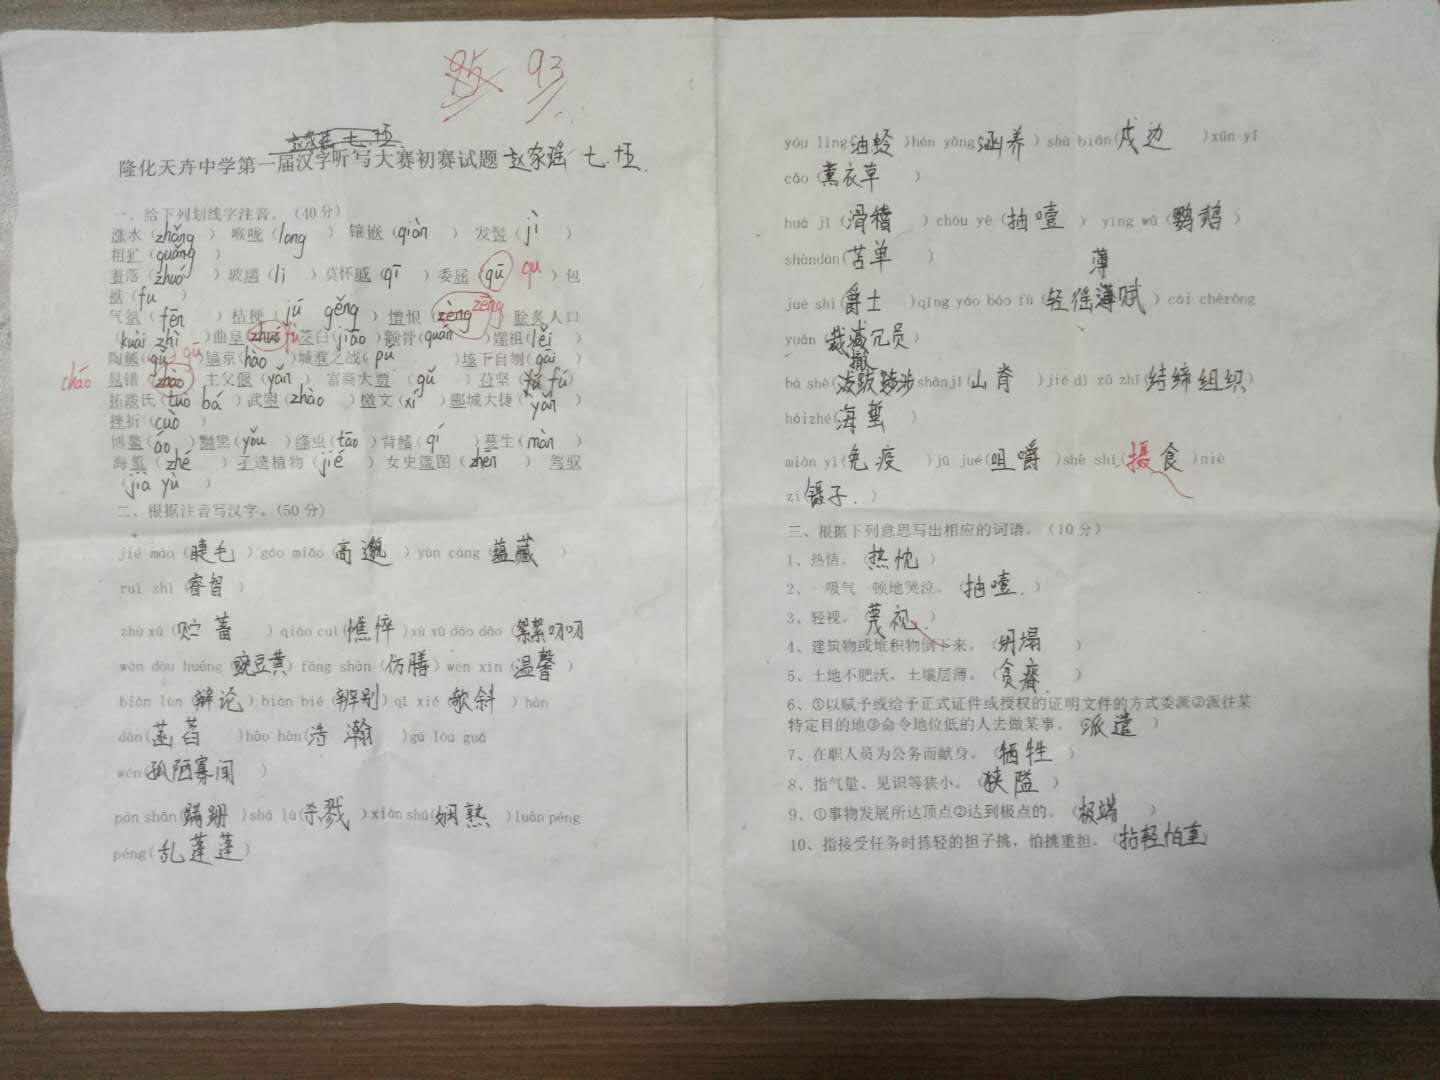 93
隆化天卉中学第一届汉字听写大赛初赛试题 赵家瑶 七.
一、给下列划线字注音。（40分）
涨水（zhǎng） 喉咙（long） 镶嵌（qiàn） 发髻（jì）
粗犷（guǎng）
着落（zhuó） 玻璃（li） 莫怀戚（qī） 委屈（qū）qu 包
袱（fu）
气氛（fēn） 桔梗（jú gěng） 憎恨（zèng）zēng 脍炙人口
（kuài zhì）曲阜（zhuó）fù 茎臼（jiāo）颧骨（quán）嫘祖（léi）
陶觚（gǔ）gū 镐京（hào）城濮之战（pú）垓下自刎（gāi）
晁错（zhāo）cháo 主父偃（yǎn） 富商大贾（gǔ）苻坚（fú）
拓跋氏（tuò bá）武曌（zhào）檄文（xí）郾城大捷（yǎn）
挫折（cuò）
博鳌（áo）黝黑（yǒu）绦虫（tāo）背鳍（qí）蔓生（màn）
海蜇（zhé）孑遗植物（jié）女史箴图（zhēn）驾驭
（jià yù）
二、根据注音写汉字。（50分）
jié máo（睫毛）gāo miǎo（高邈）yùn cáng（蕴藏）
ruì zhì（睿智）
zhù xù（贮蓄）qiáo cuì（憔悴）xù xù dāo dāo（絮絮叨叨
wān dòu huáng（豌豆黄）fǎng shàn（仿膳）wēn xīn（温馨）
biàn lùn（辩论）biàn bié（辨别）qī xié（欹斜）hàn
dàn（菡萏）hào hàn（浩瀚）gū lòu guǎ
wén（孤陋寡闻）
pán shān（蹒跚）shā lù（杀戮）xián shú（娴熟）luàn péng
péng（乱蓬蓬）
yóu líng（油蛉）hán yǎng（涵养）shù biān（戍边）xūn yī
cǎo（薰衣草）
huá jī（滑稽）chōu yē（抽噎）yīng wǔ（鹦鹉）
shàndàn（苫单）
jué shì（爵士）qīng yáo báo fù（轻徭薄赋）cái chěrǒng
yuán（裁减冗员
bá shè（跋涉）shānjǐ（山脊）jié dì zǔ zhī（结缔组织）
hǎizhé（海蜇）
miǎn yì（免疫）jǔ jué（咀嚼）shè shí（摄食）niè
zi（镊子.）
三、根据下列意思写出相应的词语。（10分）
1、热情。（热忱）
2、一吸气一顿地哭泣。（抽噎.）
3、轻视。（蔑视.）
4、建筑物或堆积物倒下来。（坍塌）
5、土地不肥沃，土壤层薄。（贫瘠.）
6、①以赋予或给予正式证件或授权的证明文件的方式委派②派往某
特定目的地③命令地位低的人去做某事。（派遣）
7、在职人员为公务而献身。（牺牲）
8、指气量、见识等狭小。（狭隘）
9、①事物发展所达顶点②达到极点的。（极端）
10、指接受任务时拣轻的担子挑，怕挑重担。（拈轻怕重